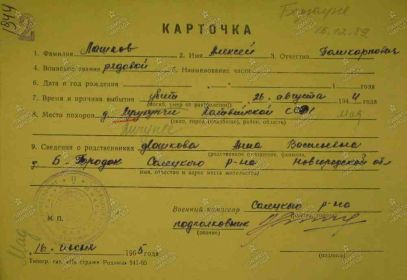 1944
15.12.89
КАРТОЧКА
1. Фамилия Лашков 2. Имя Алексей 3. Отчество
4. Воинское звание рядовой 5. Наименование части
6. Дата и год рождения 1 года
7. Время и причина выбытия убит 26 августа 1944
(погиб, умер от ран (болезни))
8. Место похорон д. Латвийской ССР
(село, город (кладбище), район, область)
9. Сведения о родственниках Лашкова Анна Васильевна
(родственные отношения, фамилия,
д. Б. Городок Солецкого р-на Новгородской обл
имя, отчество и адрес места жительства)
Военный комиссар Солецкого р-на
подполковник
(звание) (подпись)
М. П.
16 июня 196 г.
Типогр. газ. «На страже Родины» 541-65